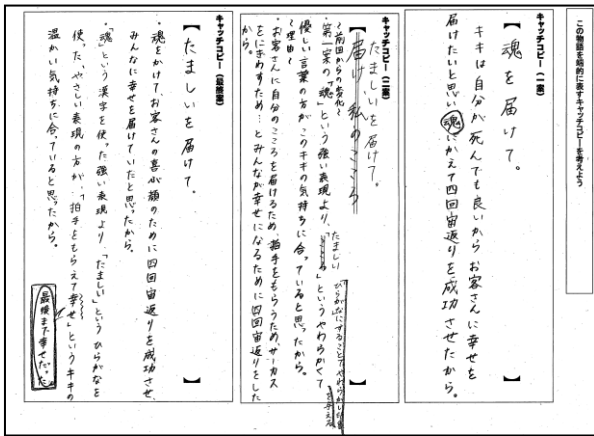 この物語を端的に表すキャッチコピーを考えよう
キャッチコピー（一案）
【魂を届けて。】
キキは自分が死んでも良いからお客さんに幸せを
届けたいと思い魂にかえて四回宙返りを成功させたから。
キャッチコピー（二案）
たましいを届けて。
【届け 私のこころ】
〜前回からの変化〜
・第一案の「魂」という強い表現より、「たましい」というやわらかくて
ひらがなにすることでやわらかい印象を与える
優しい言葉の方がこのキキの気持ちに合っていると思ったから。
〜理由〜
・お客さんに自分のこころを届けるため、拍手をもらうため、サーカス
をにぎわすため…とみんなが幸せになるために四回宙返りをした
から。
キャッチコピー（最終案）
【たましいを届けて。】
・魂をかけてお客さんの喜ぶ顔のために四回宙返りを成功させ、
みんなに幸せを届けていたと思ったから。
・「魂」という漢字を使った強い表現より「たましい」というひらがなを
使った、やさしい表現の方が、「拍手をもらえて幸せ」というキキの
温かい気持ちに合っていると思ったから。
最後まで幸せだった